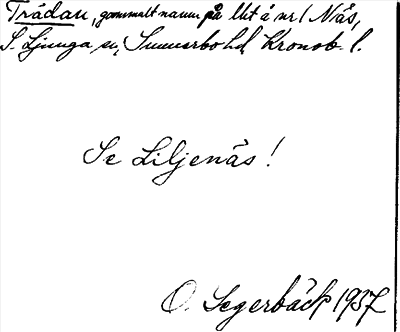 Trådan, gammalt namn på lht å nr 1 Näs,
S. Ljunga sn, Sunnerbo hd, Kronob. l.
Se Liljenäs!
O. Segerbäck 1937